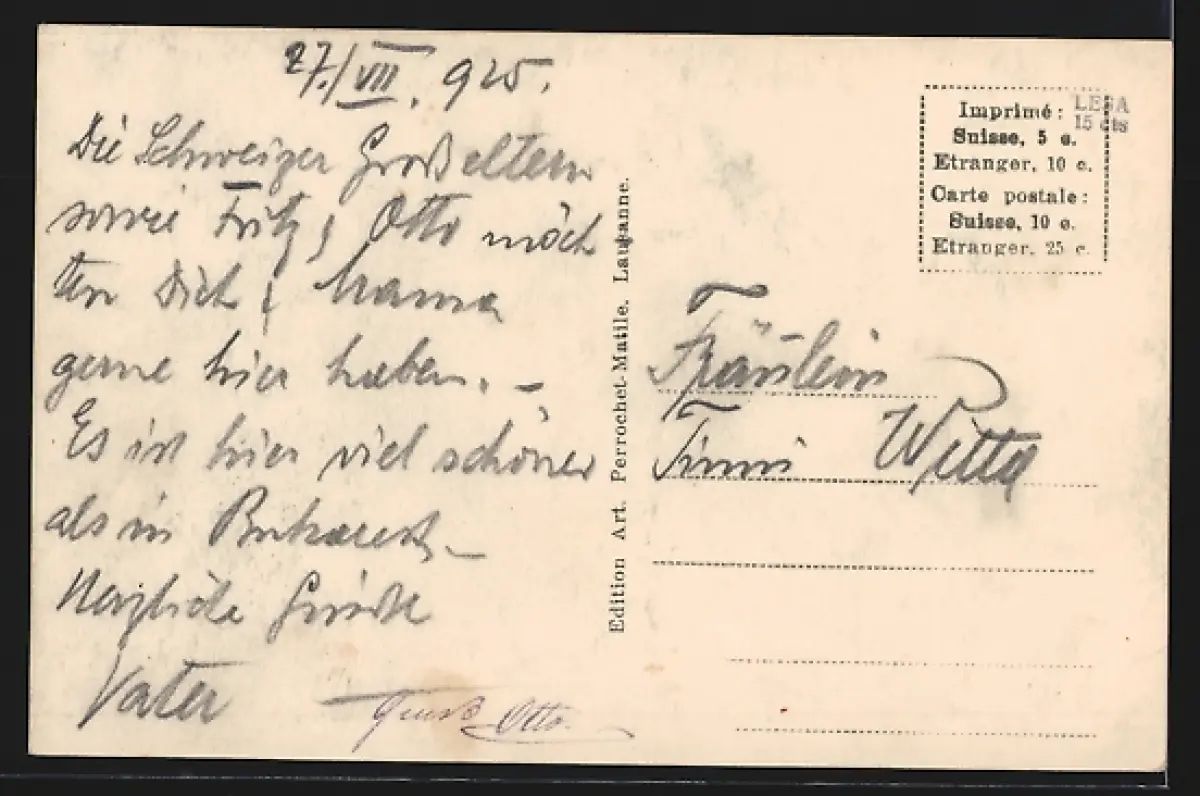 27./VII. 925.
Die Schweizer Großeltern
sowie Fritz & Otto möch
ten Dich & Mama
gerne hier haben. –
Es ist hier viel schöner
als in Bukarest. –
Herzliche Grüße
Vater
Gruß Otto.
Edition Art. Perrochet-Matile. Lausanne.
Imprimé:
Suisse, 5 c.
Etranger, 10 c.
Carte postale:
Suisse, 10 c.
Etranger. 25 c.
15 cts
Fräulein
Witta